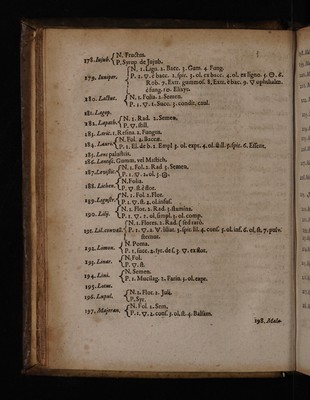 178. Jujub. { N. Fructus.
P. Syrup. de Jujub.
179. Juniper. { N. 1. Lign. 2. Bacc. 3. Gum. 4. Fung.
P. 1. ▽. è bacc. 2. spir. 3. ol. ex bacc. 4. ol. ex ligno. 5. ☉. 6.
Rob. 7. Extr. gummos. 8. Extr. è bac. 9. ▽ ophthalm.
è fung. 10. Elixyr.
280. Lactuc. { N. 1. Folia. 2. Semen.
P. 1. ▽. 2. Succ. 3. condit. caul.
181. Lagop.
182. Lapath. { N. 1. Rad. 2. Semen.
P. ▽. still.
183. Laric. 1. Resina 2. Fungus.
184. Lauri. { N. Fol. 2. Baccæ.
P. 1. Elf. de b. 2. Empl. 3. ol. expr. 4. ol. still. 5. spir. 6. Essen.
185. Lent. palustris.
186. Lentisc. Gumm. vel Mastich.
187. Levistic. { N. 1. Fol. 2. Rad. 3. Semen.
P. 1. ▽. 2. ol. 3. ☉.
188. Lichen. { N. Folia.
P. ▽. st. è flor.
189. Ligustr. { N. 1. Fol. 2. Flor.
P. 1. ▽. st. 2. ol. infus.
190. Lilij. { N. 1. Flor. 2. Rad. 3. stamina.
P. 1. ▽. 2. ol. simpl. 3. ol. comp.
191. Lil. convall. { N. 1. Flores. 2. Rad. (sed rarò.
P. 1. ▽. 2. V. liliar. 3. spir. lil. 4. cons. 5. ol. inf. 6. ol. st. 7. pulv.
sternut.
192. Limon. { N. Poma.
P. 1. succ. 2. syr. de s. 3. ▽. ex flor.
193. Linar. { N. Fol.
P. ▽. st.
194. Lini. { N. Semen.
P. 1. Mucilag. 2. Farin. 3. ol. expr.
195. Lotus.
196. Lupul. { N. 1. Flor. 2. Juli.
P. Syr.
197. Majoran. { N. Fol. 2. Sem.
P. 1. ▽. 2. cons. 3. ol. st. 4. Balsam.
198. Malva